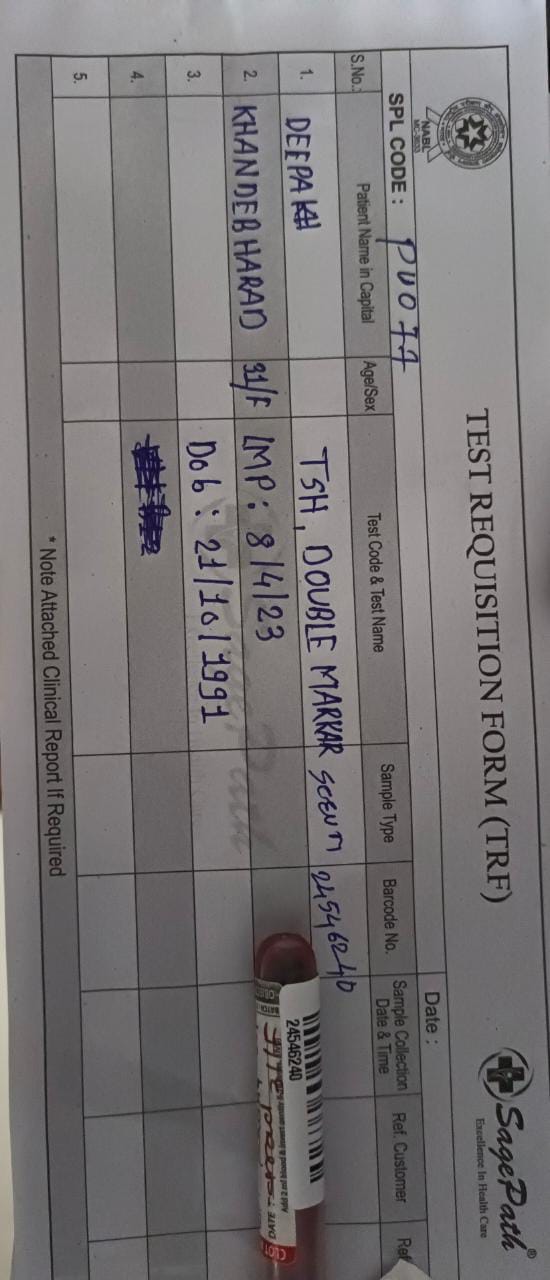 NABL
MC-3633
TEST REQUISITION FORM (TRF)
SagePath®
Excellence In Health Care
SPL CODE : PU077
Date :
S.No.: Patient Name in Capital Age/Sex Test Code & Test Name Sample Type Barcode No. Sample Collection Date & Time Ref. Customer Ref
1. DEEPAK TSH, DOUBLE MARKAR SCEUM 24546240
2. KHANDEBHARAD 31/F LMP: 8/4/23
3. Dob: 21/10/1991
4.
5.
* Note Attached Clinical Report If Required
24546240
DATE
CLOT